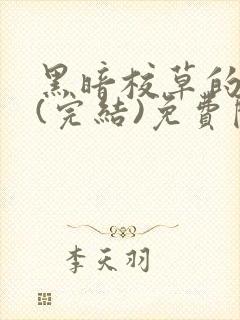 黑暗校草的
(完結)免費
李天羽